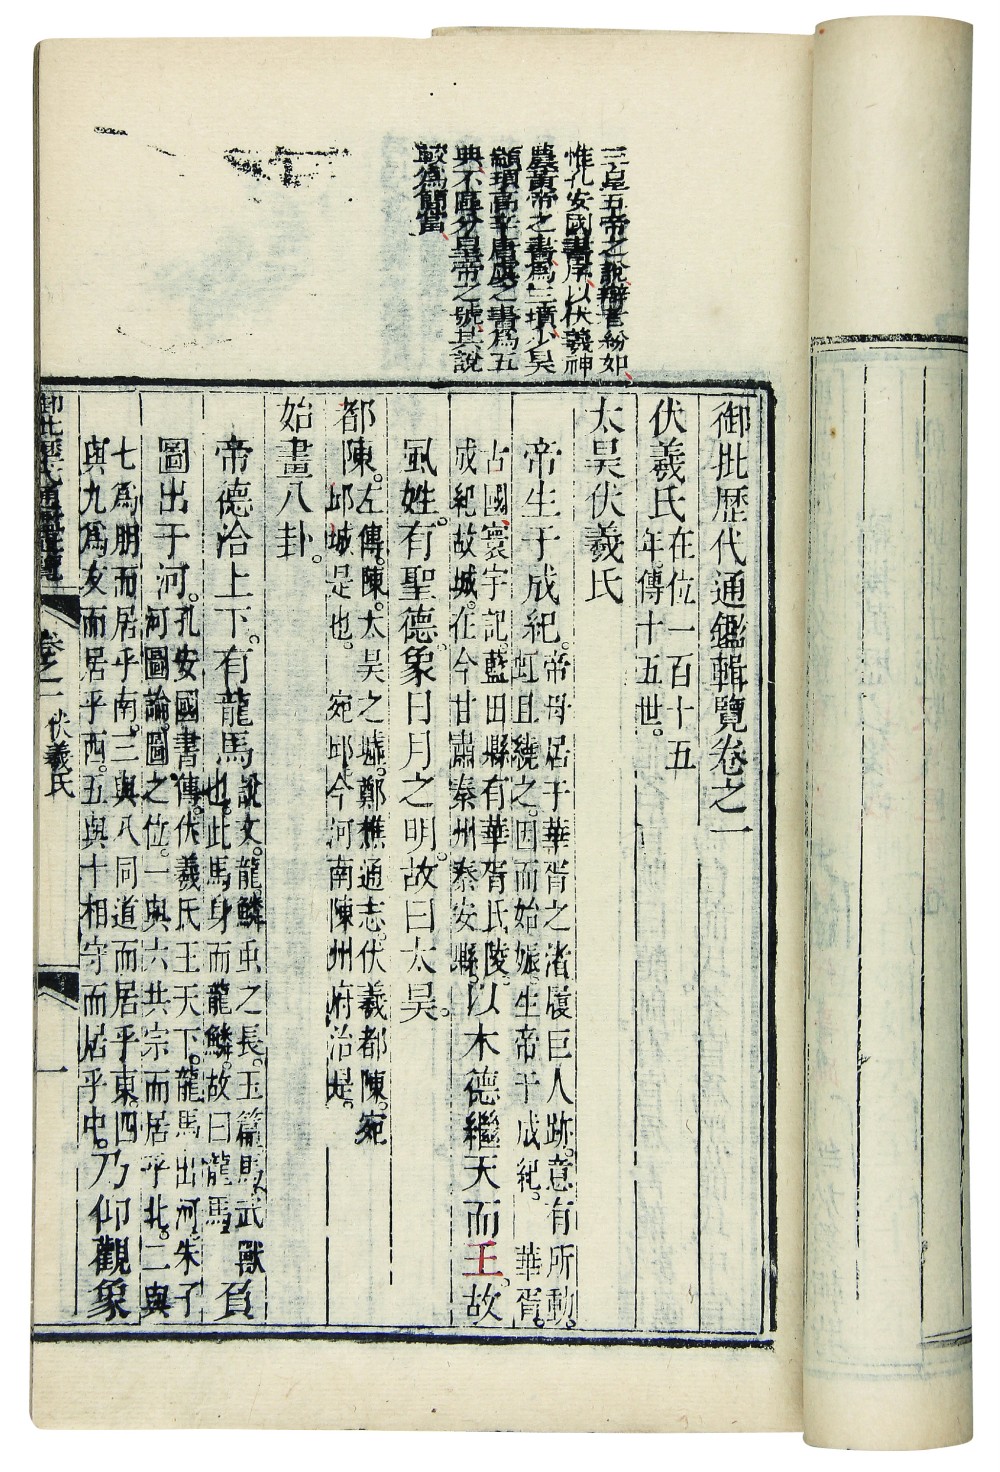 三皇五帝之說辯者紛如
惟孔安國書序以伏羲神
農黃帝之書為三墳少昊
顓頊高辛唐虞之書為五
典不區分皇帝之號其說
較為簡當
御批歷代通鑑輯覽卷之一
伏羲氏在位一百十五
年傳十五世。
太昊伏羲氏
帝生于成紀。帝母居于華胥之渚履巨人跡。意有所動。
虹且繞之。因而始娠。生帝于成紀。 華胥。
古國寰宇記。藍田縣有華胥氏陵。
成紀故城。在今甘肅秦州秦安縣。以木德繼天而王。故
風姓。有聖德。象日月之明。故曰太昊。
都陳。左傳。陳。太昊之墟。鄭樵通志。伏羲都陳。宛
邱城是也。 宛邱今河南陳州府治是。
始畫八卦。
帝德洽上下。有龍馬說文。龍。鱗虫之長。玉篇。馬。武獸
也。此馬身而龍鱗。故曰龍馬負
圖出于河。孔安國書傳。伏羲氏王天下。龍馬出河。朱子
河圖論。圖之位。一與六共宗而居乎北。二與
七為朋而居乎南。三與八同道而居乎東。四
與九為友而居乎西。五與十相守而居乎中。乃仰觀象
御批歷代通鑑輯覽 卷之一 伏羲氏 一